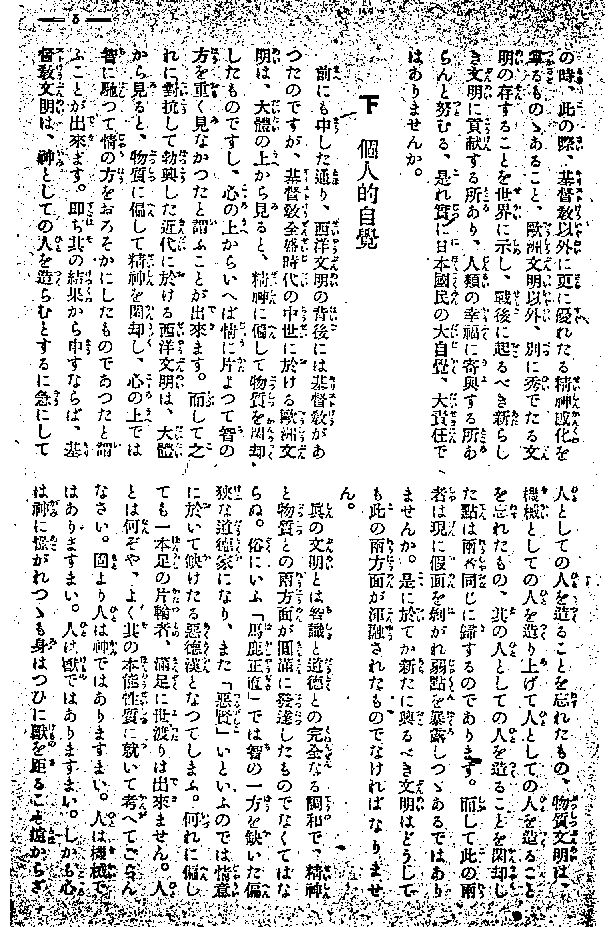 — 5 —
の時、此の際、基督敎以外に更に優れたる精神感化を
奪るものゝあること、歐洲文明以外、別に秀でたる文
明の存することを世界に示し、戰後に起るべき新らし
き文明に貢獻する所あり、人類の幸福に寄與する所あ
らんと努むる、是れ實に日本國民の大自覺、大責任で
はありませんか。
下 個人的自覺
前にも申した通り、西洋文明の背後には基督敎があ
つたのですが、基督敎全盛時代の中世に於ける歐洲文
明は、大體の上から見ると、精神に偏して物質を閑却
したものですし、心の上からいへば情に片よつて智の
方を重く見なかつたと謂ふことが出來ます。而して之
れに對抗して勃興した近代に於ける西洋文明は、大體
から見ると、物質に偏して精神を閑却し、心の上では
智に馳つて情の方をおろそかにしたものであつたと謂
ふことが出來ます。即ち其の結果から申すならば、基
督敎文明は、神としての人を造らむとするに急にして
人としての人を造ることを忘れたもの、物質文明は、
機械としての人を造り上げて人としての人を造ること
を忘れたもの、其の人としての人を造ることを閑却し
た點は兩々同じに歸するのであります。而して此の兩
者は現に假面を剝がれ弱點を暴露しつゝあるではあり
ませんか。是に於てか新たに興るべき文明はどうして
も此の兩方面が渾融されたものでなければなりませ
ん。
眞の文明とは智識と道德との完全なる調和で、精神
と物質との兩方面が圓滿に發達したものでなくてはな
らぬ。俗にいふ「馬鹿正直」では智の一方を缺いた偏
狹な道德家になり、また「惡賢」いといふのでは情意
に於いて缺けたる惡德漢となつてしまふ。何れに偏し
ても一本足の片輪者、滿足に世渡りは出來ません。人
とは何ぞや、よく其の本能性質に就いて考へてごらん
なさい。固より人は神ではありますまい。人は機械で
はありますまい。人は獸ではありますまい。しかも心
は神に憧がれつゝも身はつひに獸を距ること遠からざ